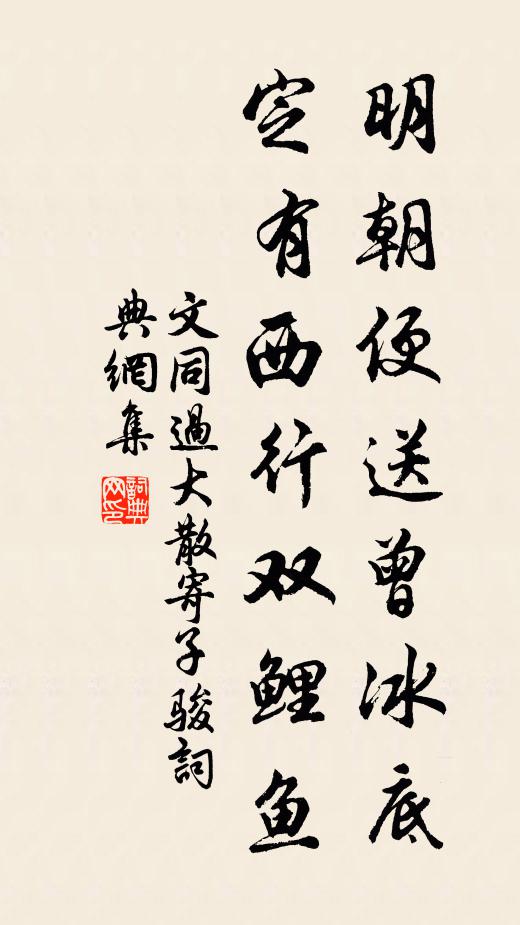 明朝便送曾冰底
定有西行双鲤鱼
文同過大散寄子駿詞
典網集
詞典网印